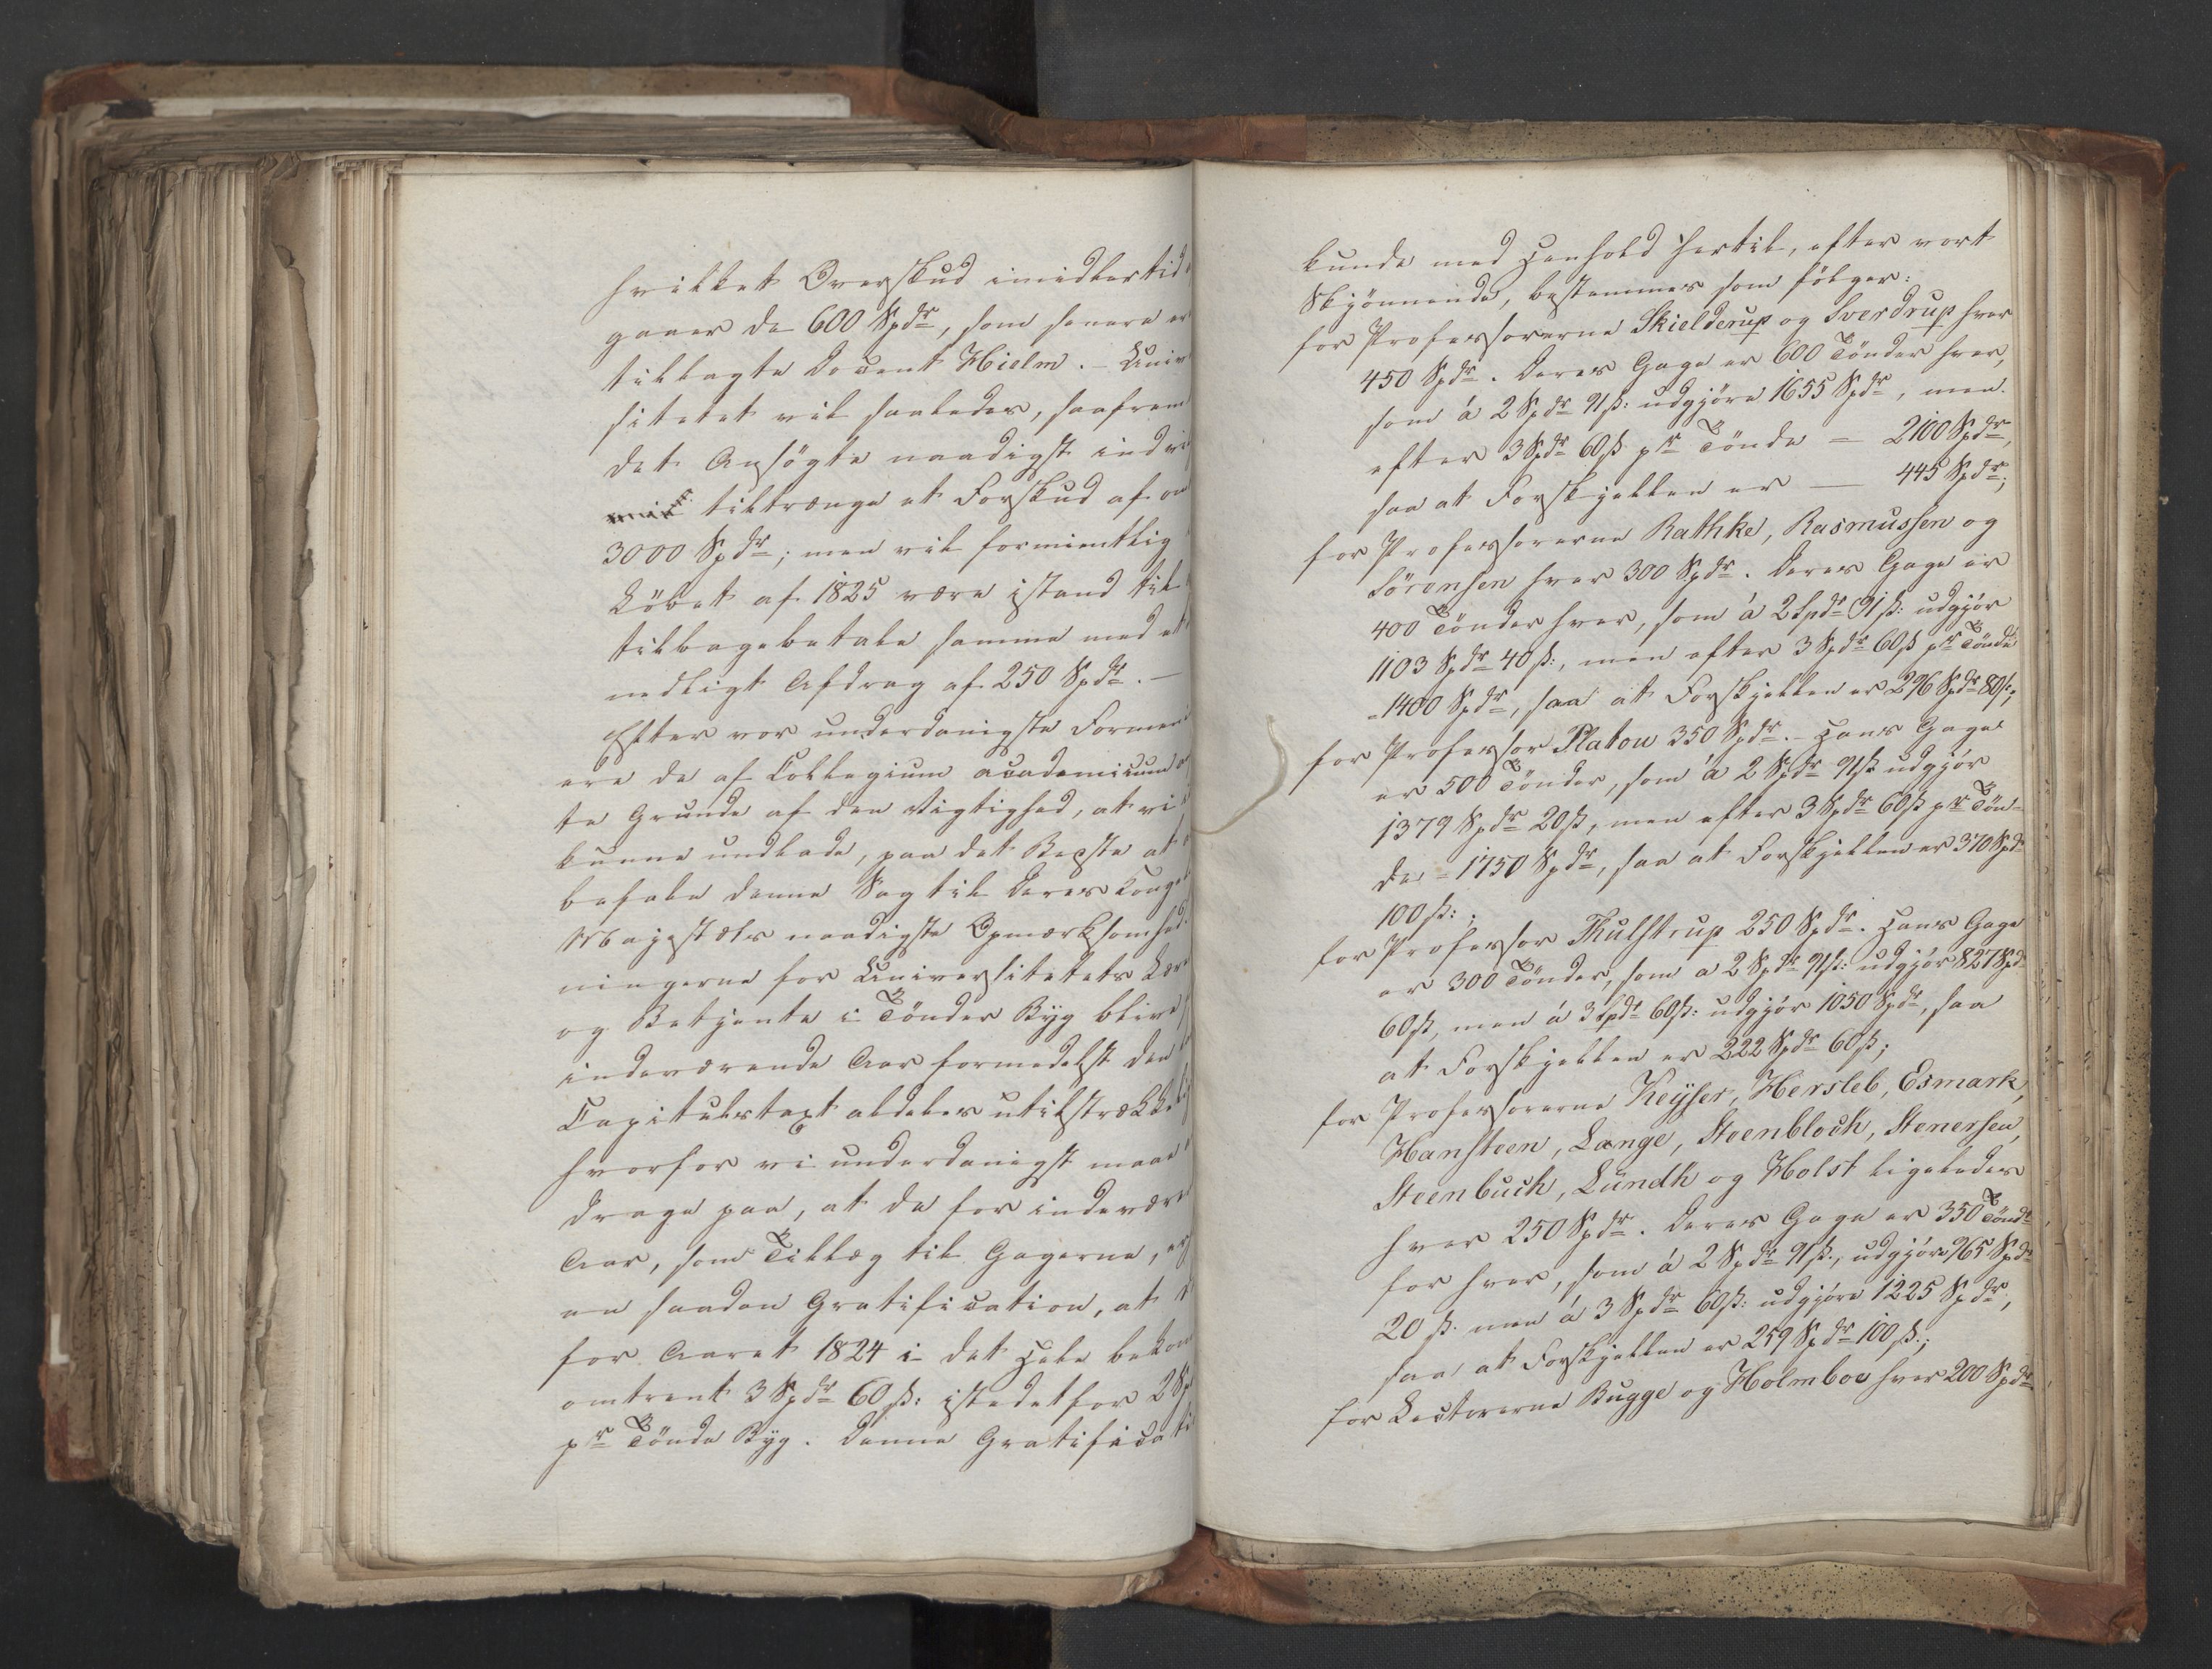 hvilket Overskud imidlertid
gaaer de 600 Spdr, som senere er
tillagte Docent Hielm. – Univer
sitetet vil saaledes, saafremt
det Ansögte naadigst indvil
tiltrænge et Forskud af om
3000 Spdr; men vil formientlig
Löbet af 1825 være istand til
tilbagebetale samme med et
nedligt Afdrag af 250 Spdr. –
Efter vor underdanigste Formen
ere de af Collegium academicum
te Grunde af den Vigtighed, at vi
kunne undlade, paa det Bedste at
befale denne Sag til Deres Konge
Majestæts naadigste Opmærksomhed.
ningerne for Universitetets Lære
og Betjente i Tönder Byg blive
indeværende Aar formedelst den
Capitelstaxt aldeles utilstrækkelig
hvorfor vi underdanigst maae
drage paa, at de for indevære
Aar, som Tillæg til Gagerne,
en saadan Gratification, at d
for Aaret 1824 i det Hele bekom
omtrent 3 Spdr 60 ß: istedetfor 2 Sp
pr Tönde Byg. Denne Gratificati
kunde med Henhold hertil, efter vort
Skjönnende, bestemmes som fölger:
for Professorerne Skielderup og Sverdrup hver
450 Spdr. Deres Gage er 600 Tönder hver,
som á 2 Spdr 91 ß: udgjöre 1655 Spdr, men
efter 3 Spdr 60 ß pr Tönde – 2100 Spdr,
saa at Forskjellen er – 445 Spdr;
for Professorerne Rathke, Rasmussen og
Sörensen hver 300 Spdr. Deres Gage er
400 Tönder hver, som á 2 Spdr 91 ß: udgjör
1103 Spdr 40 ß:, men efter 3 Spdr 60 ß pr Tönde
= 1400 Spdr, saa at Forskjellen er 296 Spdr 80 ß;
for Professor Platou 350 Spdr. – Hans Gage
er 500 Tönder, som á 2 Spdr 91 ß udgjör
1379 Spdr 20 ß, men efter 3 Spdr 60 ß pr Tön-
de = 1750 Spdr, saa at Forskjellen er 370 Spdr
100 ß:;
for Professor Thulstrup 250 Spdr. Hans Gage
er 300 Tönder, som a 2 Spdr 91 ß: udgjör 827 Spdr
60 ß, men á 3 Spdr 60 ß: udgjör 1050 Spdr, saa
at Forskjellen er 222 Spdr 60 ß;
for Professorerne Keyser, Hersleb, Esmark,
Hansteen, Lange, Steenbloch, Stenersen,
Steenbuch, Lundh og Holst ligeledes
hver 250 Spdr. Deres Gage er 350 Tönder
for hver, som á 2 Spdr 91 ß:, udgjöre 965 Spdr
20 ß. men á 3 Spdr 60 ß: udgjöre 1225 Spdr,
saa at Forskjellen er 259 Spdr 100 ß.;
for Lectorerne Bugge og Holmboe hver 200 Spdr